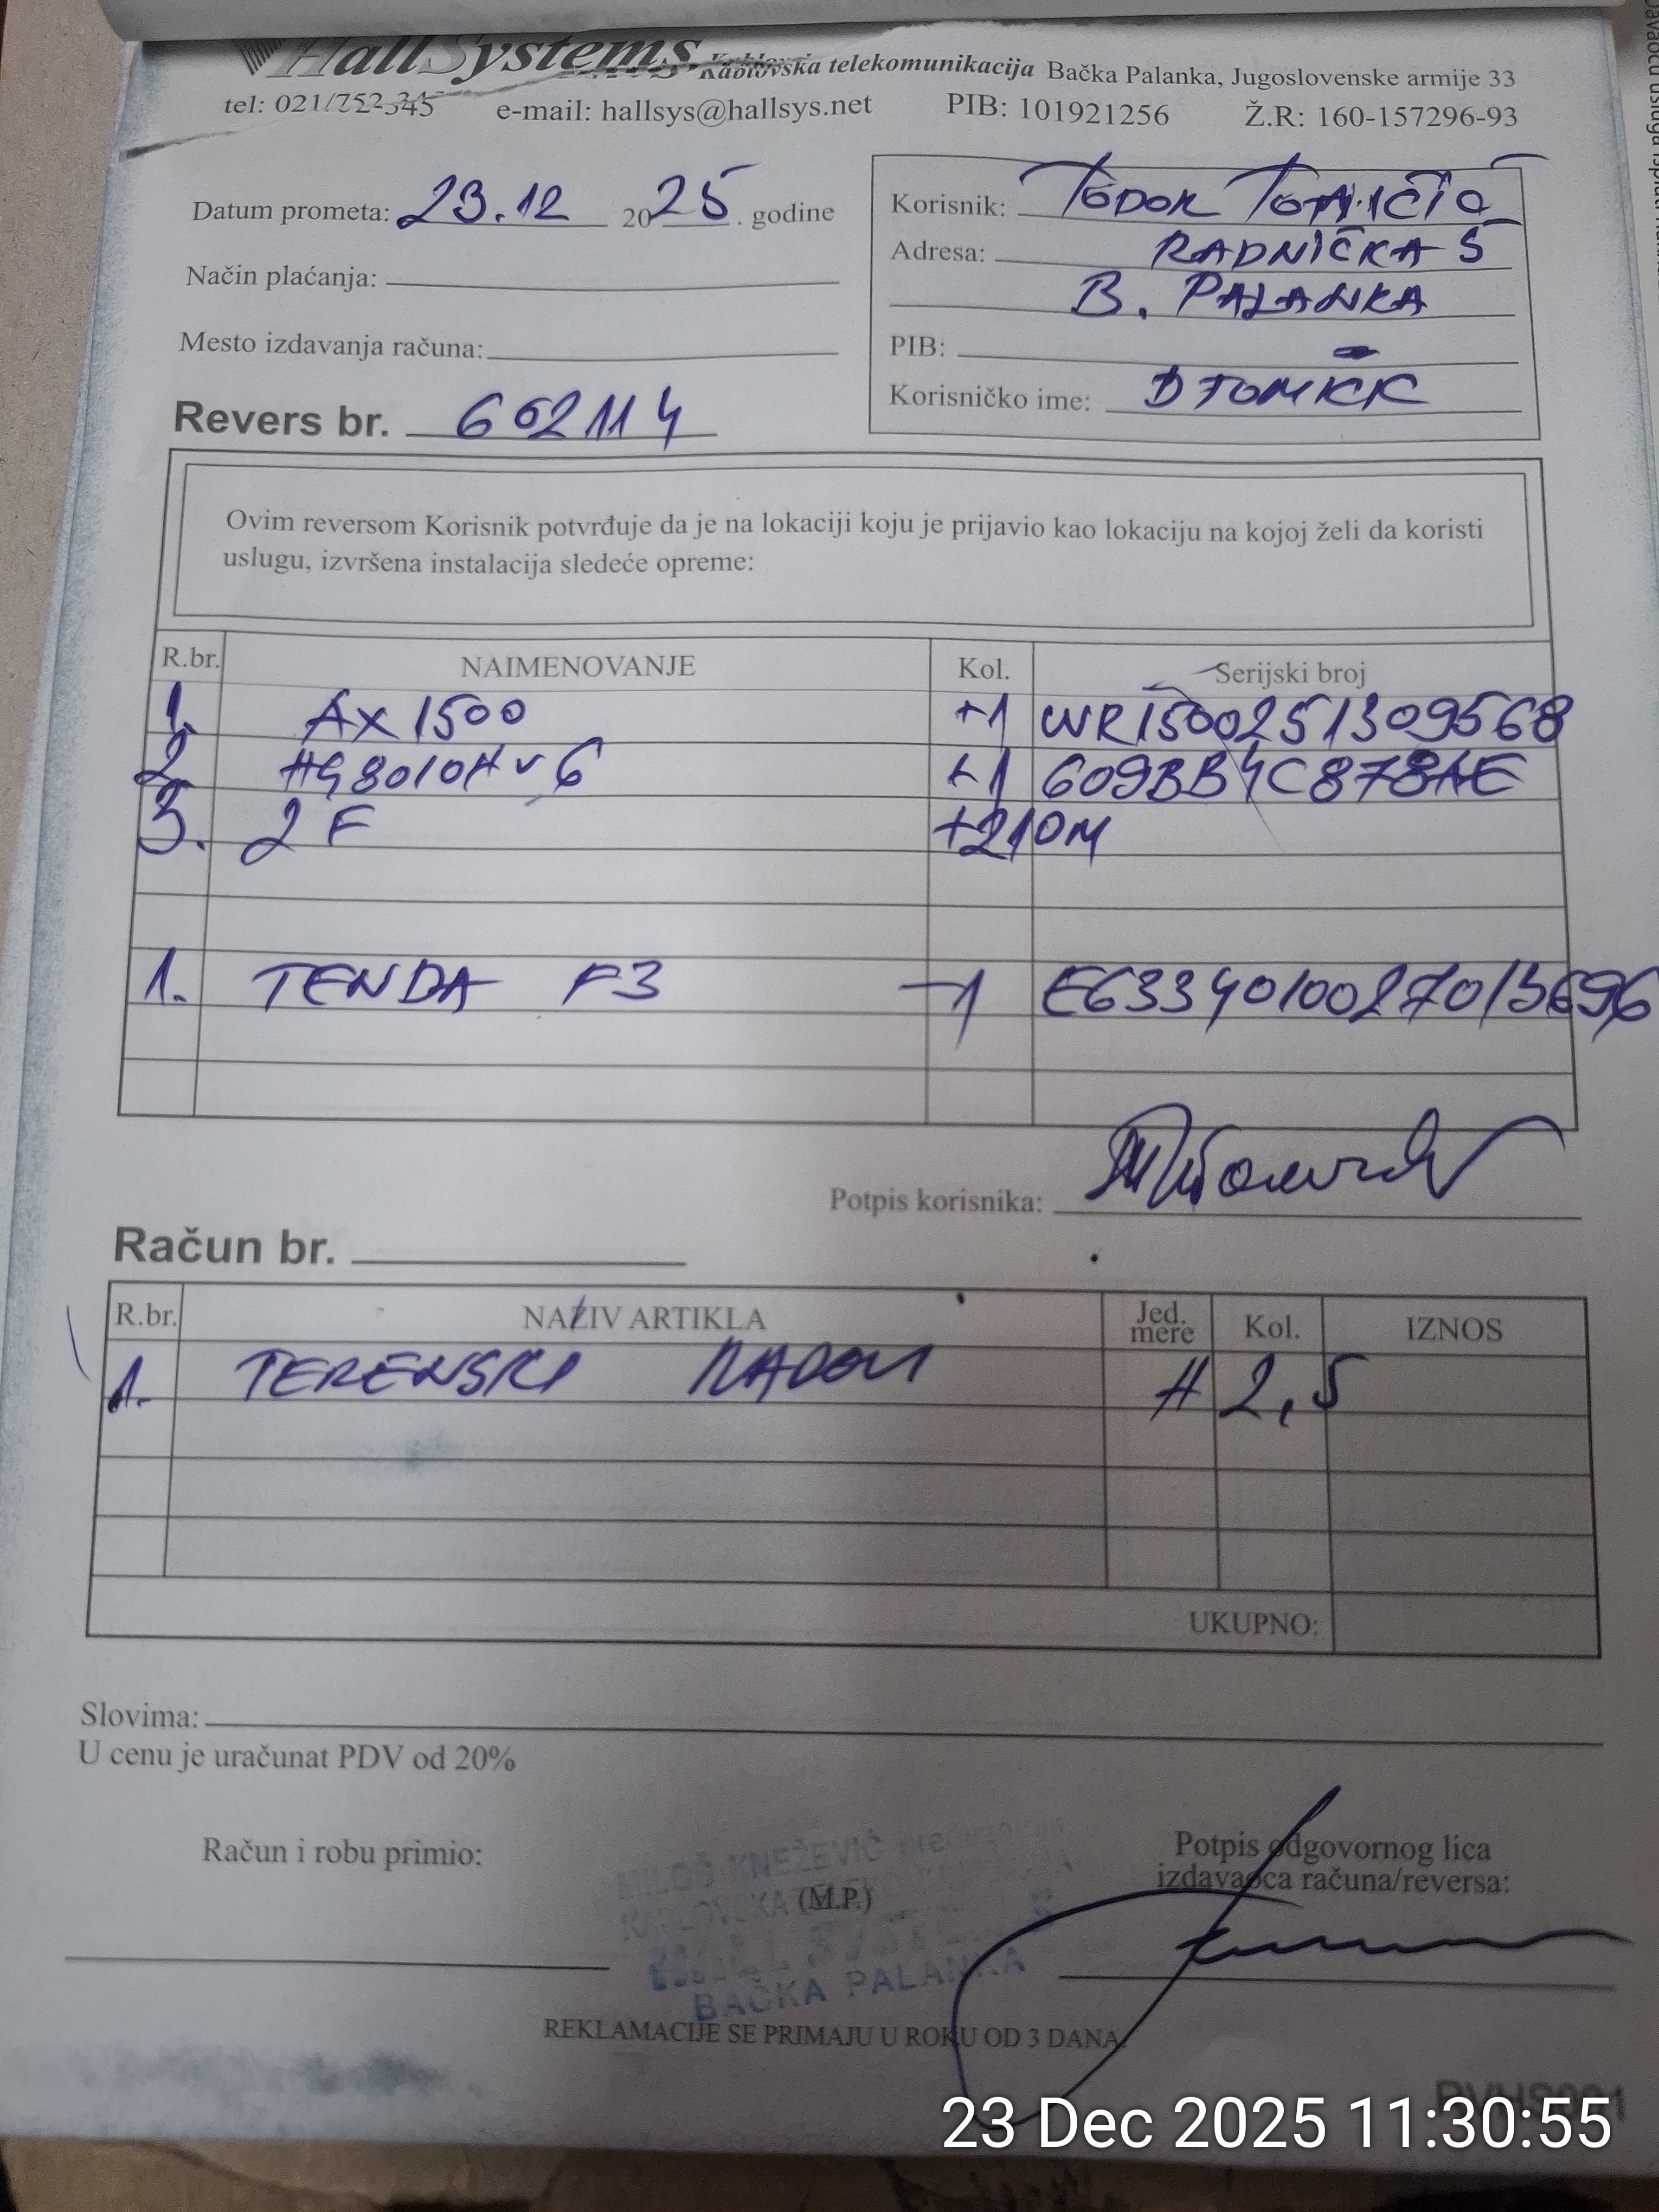 HallSystems Kablovska telekomunikacija Bačka Palanka, Jugoslovenske armije 33
tel: 021/752-345 e-mail: hallsys@hallsys.net PIB: 101921256 Ž.R: 160-157296-93
Datum prometa: 23.12 2025. godine
Korisnik: TODOR
Adresa: RADNIČKA 5
B. PALANKA
Način plaćanja:
Mesto izdavanja računa:
PIB: -
Korisničko ime: DTOMKK
Revers br. 602114
Ovim reversom Korisnik potvrđuje da je na lokaciji koju je prijavio kao lokaciju na kojoj želi da koristi
uslugu, izvršena instalacija sledeće opreme:
R.br. NAIMENOVANJE Kol. Serijski broj
1. AX1500 +1 WR1500251309568
2. HG8010H v6 +1 609BB4C878AE
3. 2F +210M
1. TENDA F3 -1 E6334010027013696
Potpis korisnika:
Račun br.
R.br. NAZIV ARTIKLA Jed. mere Kol. IZNOS
1. TERENSKI RADOVI H 2,5
UKUPNO:
Slovima:
U cenu je uračunat PDV od 20%
Račun i robu primio:
MILOŠ KNEŽEVIĆ
(M.P.)
BAČKA PALANKA
Potpis odgovornog lica
izdavaoca računa/reversa:
REKLAMACIJE SE PRIMAJU U ROKU OD 3 DANA.
23 Dec 2025 11:30:55